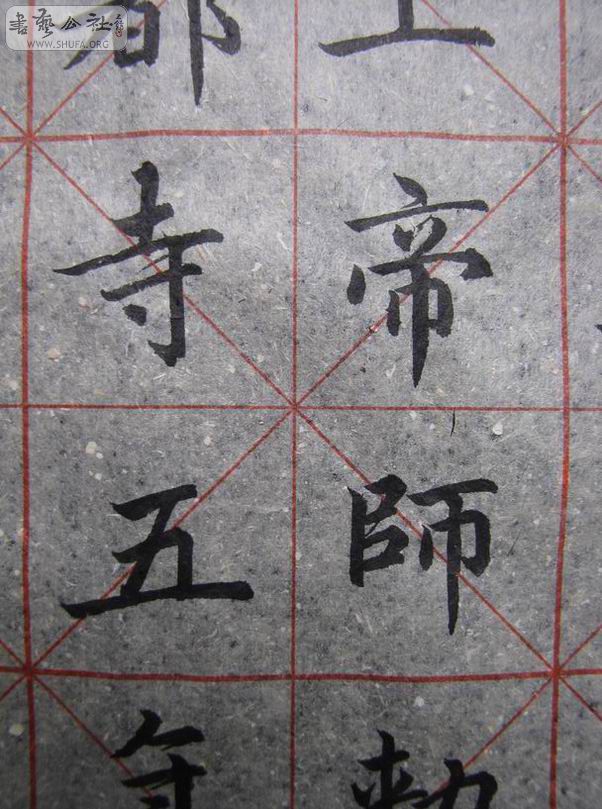 書藝公社
WWW.SHUFA.ORG
上帝師
都寺五年